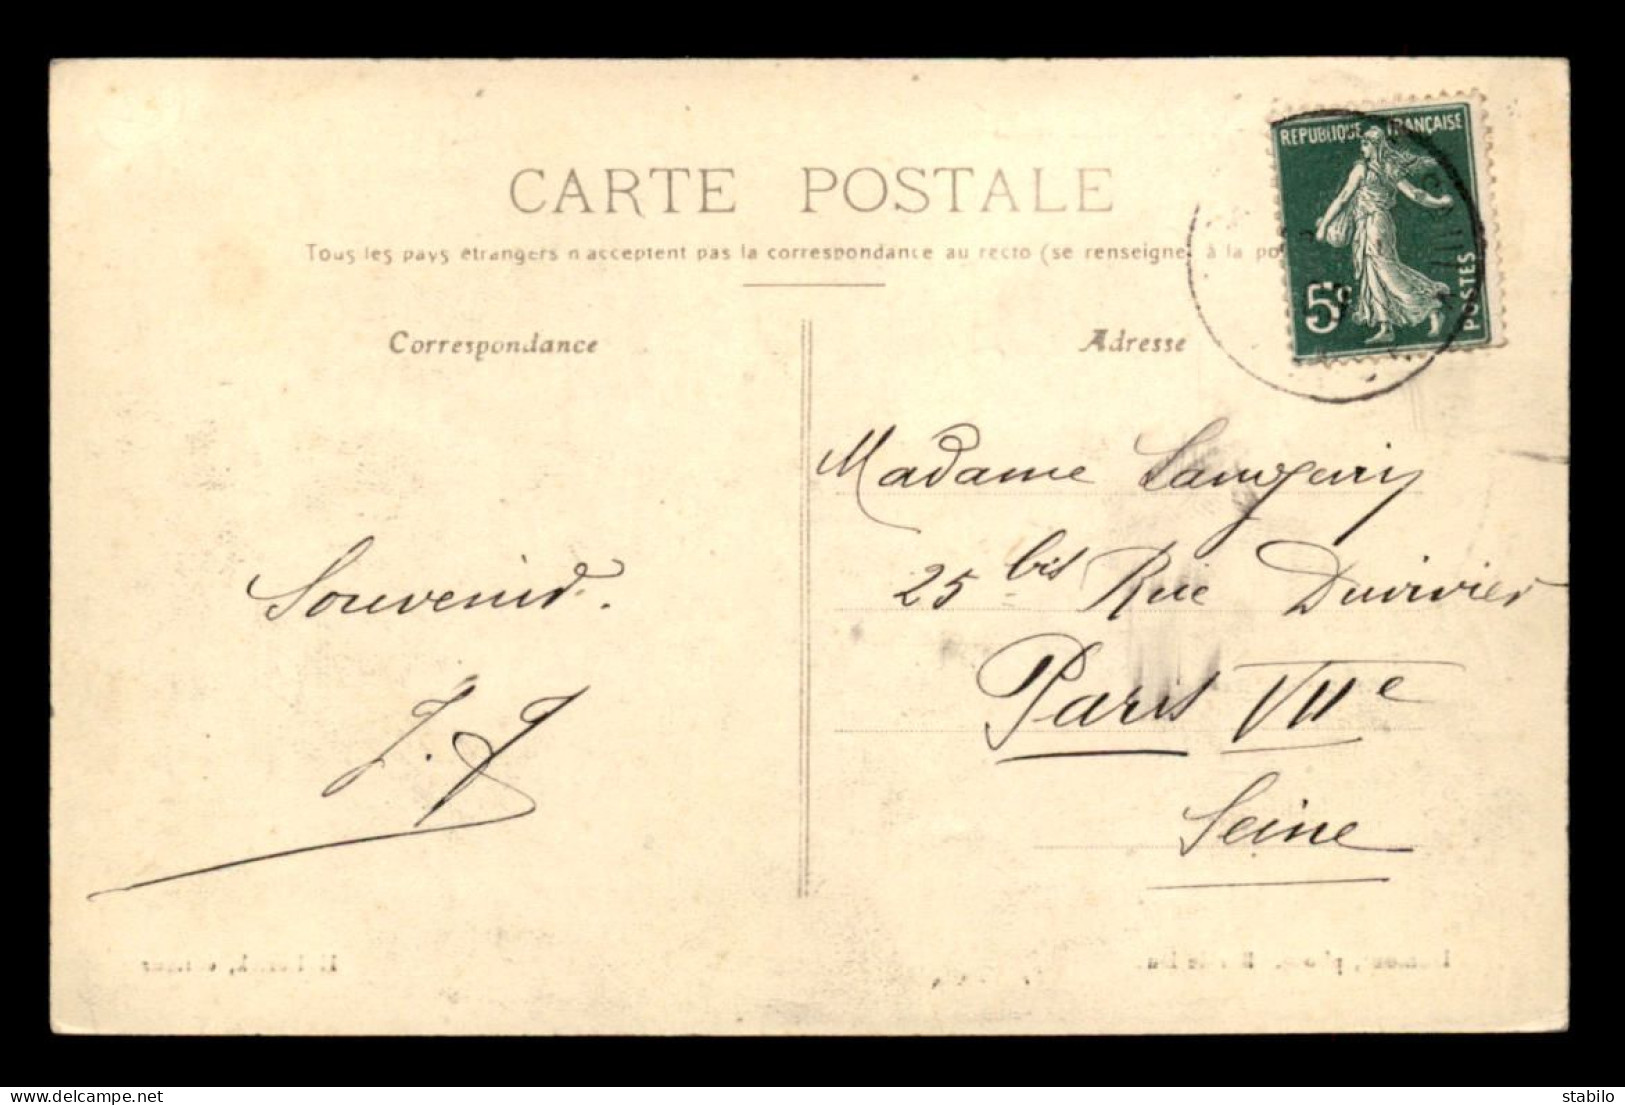 CARTE POSTALE
Tous les pays étrangers n'acceptent pas la correspondance au recto (se renseigner à la
REPUBLIQUE FRANÇAISE
5c
POSTES
Correspondance
Souvenir.
J. J.
Adresse
Madame
25 bis Rue Duvivier
Paris VIIe
Seine
delcampe.net
stabilo